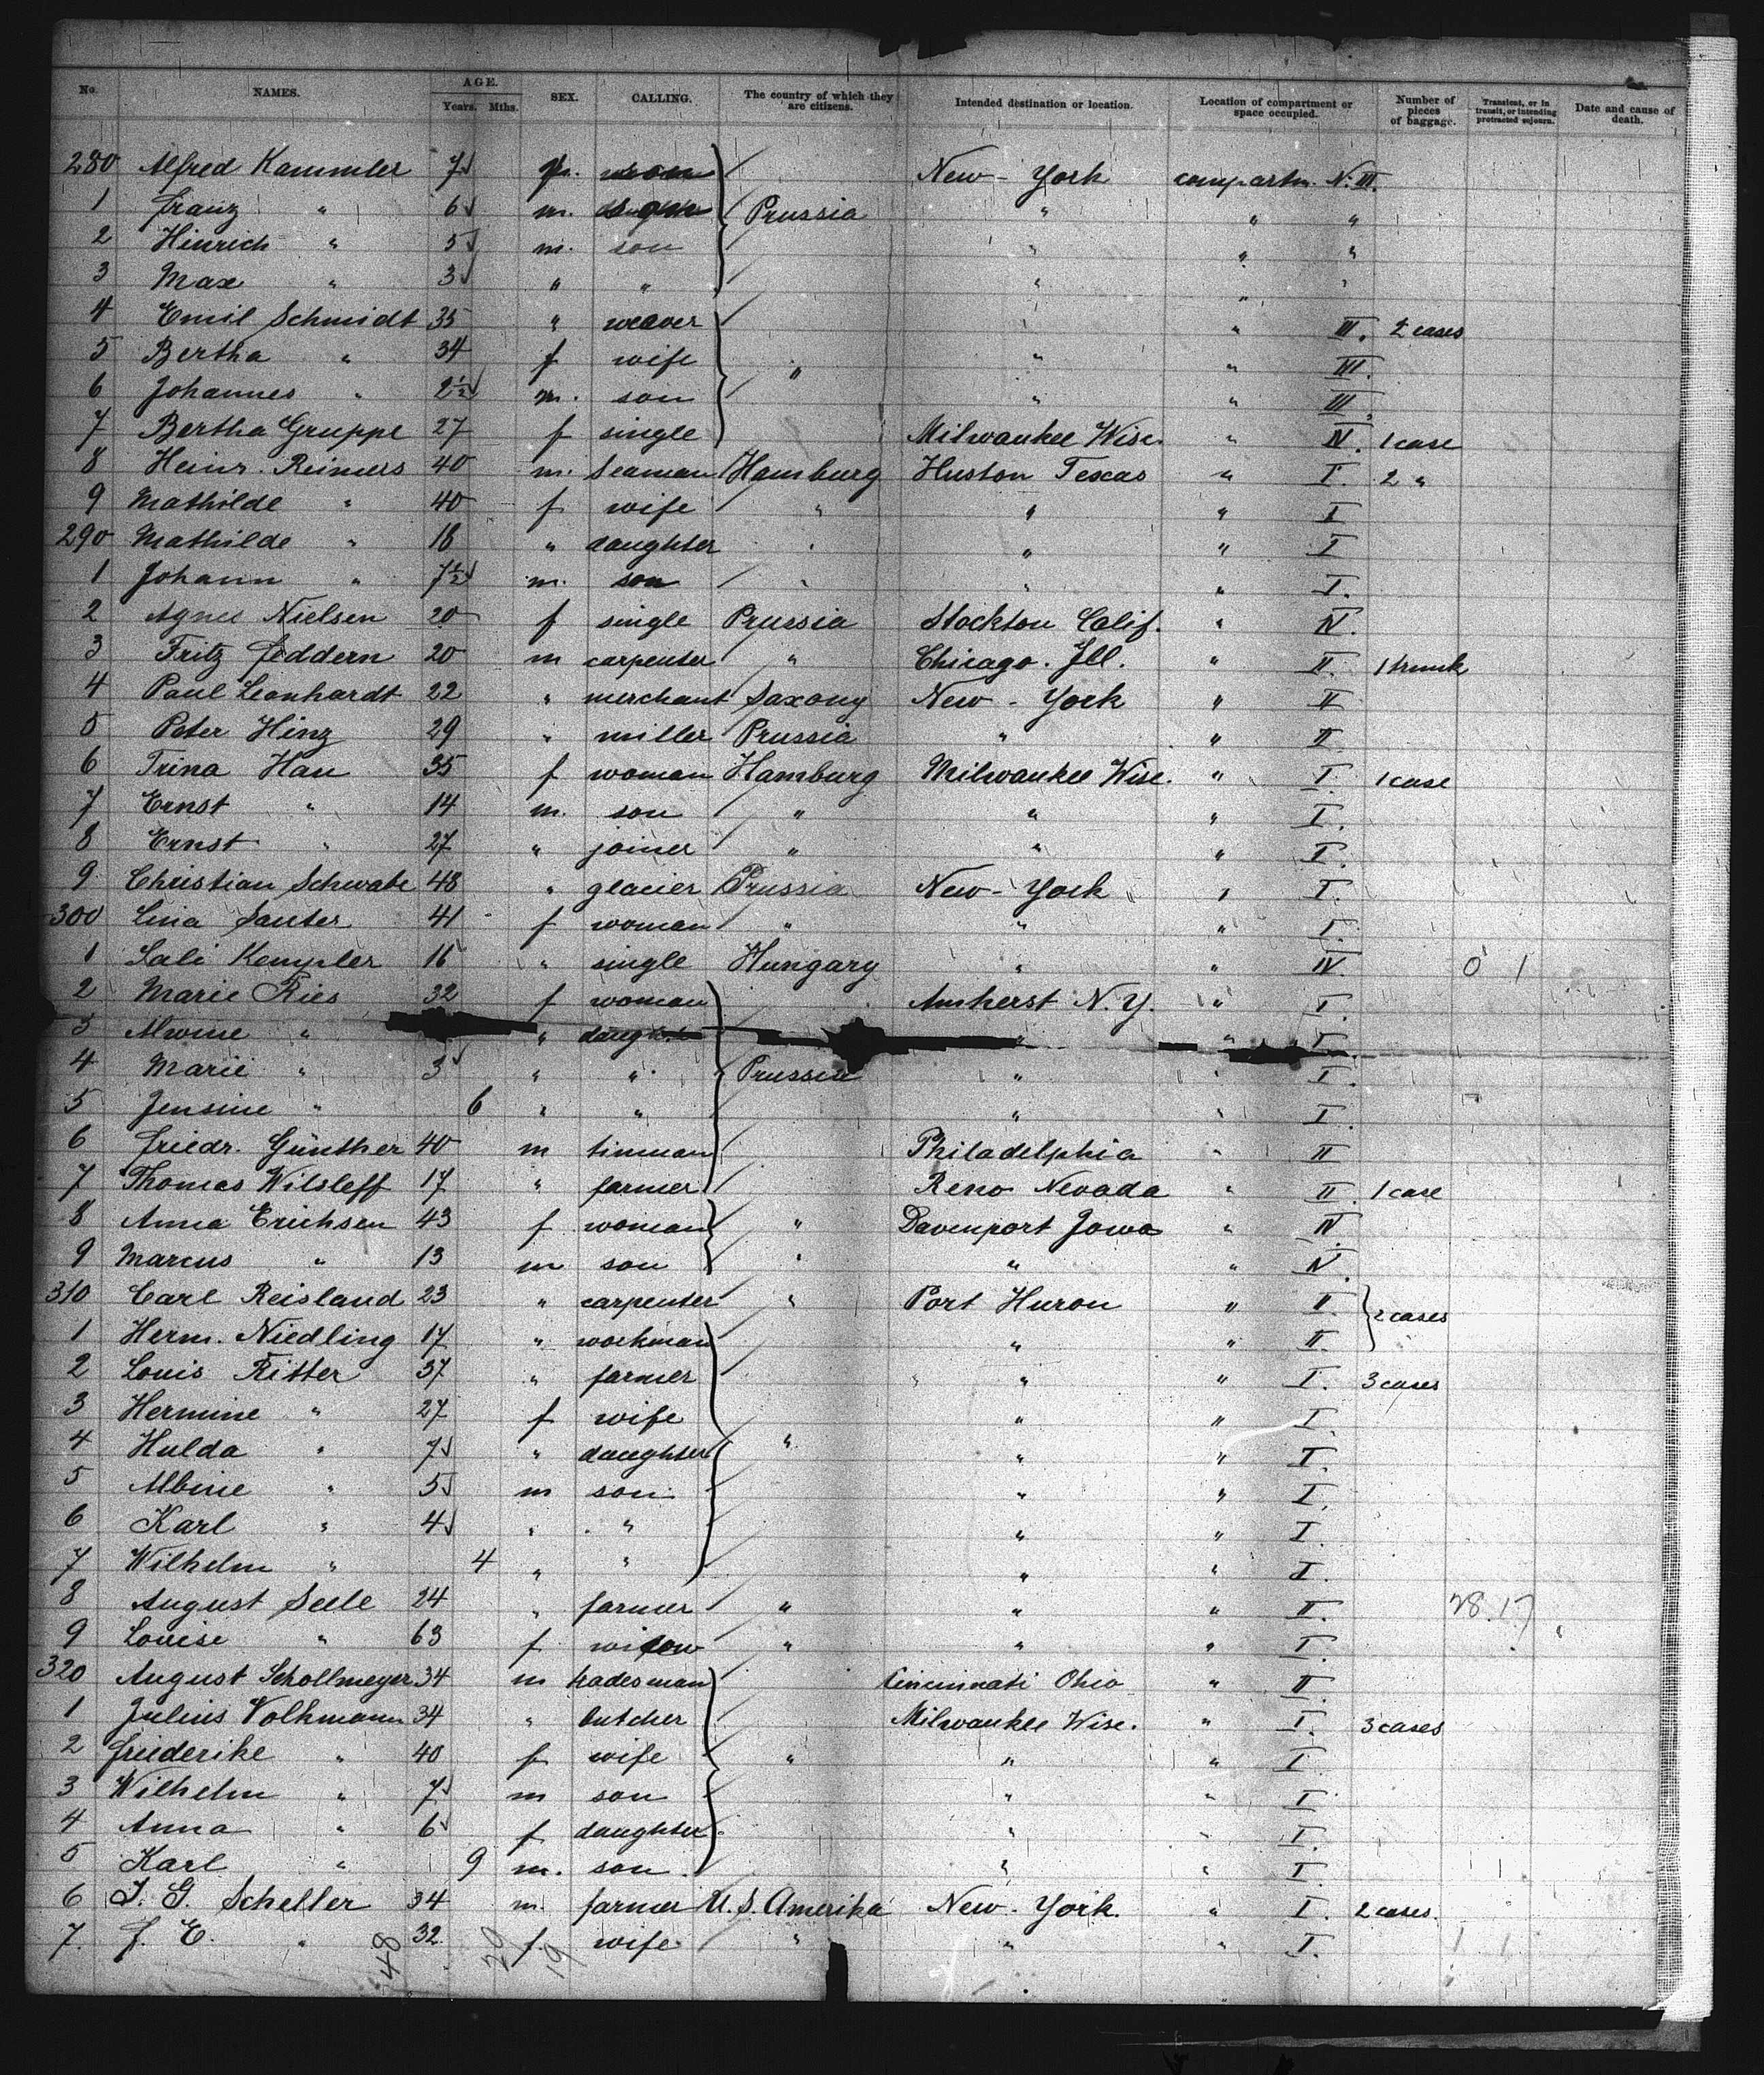 No. NAMES. AGE. Years. Mths. SEX. CALLING. The country of which they are citizens. Intended destination or location. Location of compartment or space occupied. Number of pieces of baggage. Transient, or in transit, or intending protracted sojourn. Date and cause of death.
280 Alfred Kammler 7 m. son New-York compartm. N. III.
1 Franz " 6 m. son Prussia " " "
2 Hinrich " 5 m. son " " "
3 Max " 3 " " " " "
4 Emil Schmidt 35 " weaver " III. 2 cases
5 Bertha " 34 f wife " " " III.
6 Johannes " 2½ m. son " " III.
7 Bertha Gruppe 27 f single Milwaukee Wisc. " IV. 1 case
8 Heinr. Reimers 40 m. Seaman Hamburg Huston Texas " I. 2 "
9 Mathilde " 40 f wife " " " I
290 Mathilde " 18 " daughter " " " I
1 Johann " 7½ m. son " " " I.
2 Agnes Nielsen 20 f single Prussia Stockton Calif. " IV.
3 Fritz Feddern 20 m carpenter " Chicago. Ill. " II. 1 trunk
4 Paul Leonhardt 22 " merchant Saxony New-York " II
5 Peter Hinz 29 " miller Prussia " " II
6 Trina Hau 35 f woman Hamburg Milwaukee Wisc. " I. 1 case
7 Ernst " 14 m. son " " " I.
8 Ernst " 27 " joiner " " " I.
9 Christian Schwabe 48 " glacier Prussia New-York " I.
300 Lina Sauter 41 f woman " " " I
1 Sali Kempler 16 " single Hungary " " IV. 0 1
2 Marie Ries 32 f woman Amherst N.Y. " I.
3 Alwine " " daught. " " I.
4 Marie " 3 " " Prussia " " I.
5 Jensine " 6 " " " " I.
6 Friedr. Günther 40 m tinman Philadelphia " II
7 Thomas Wilsleff 17 " farmer Reno Nevada " II. 1 case
8 Anna Erichsen 43 f woman " Davenport Iowa " IV
9 Marcus " 13 m son " " " IV.
310 Carl Reisland 23 " carpenter " Port Huron " II 2 cases
1 Herm. Niedling 17 " workman " " II.
2 Louis Ritter 37 " farmer " " I. 3 cases
3 Hermine " 27 f wife " " I.
4 Hulda " 7 " daughter " " " I.
5 Albine " 5 m son " " I.
6 Karl " 4 " " " " I.
7 Wilhelm " 4 " " " " I.
8 August Seele 24 " farmer " " " II. 28.17
9 Louise " 63 f widow " " " I.
320 August Schollmeyer 34 m tradesman Cincinnati Ohio " II.
1 Julius Volkmann 34 " butcher Milwaukee Wisc. " I. 3 cases
2 Friederike " 40 f wife " " " I
3 Wilhelm " 7 m son " " I
4 Anna " 6 f daughter " " I.
5 Karl " 9 m. son " " I.
6 J. G. Scheller 34 m. farmer U.S. Amerika New-York. " I. 2 cases.
7. F. E. " 32 f. wife " " " I.
48 20 19